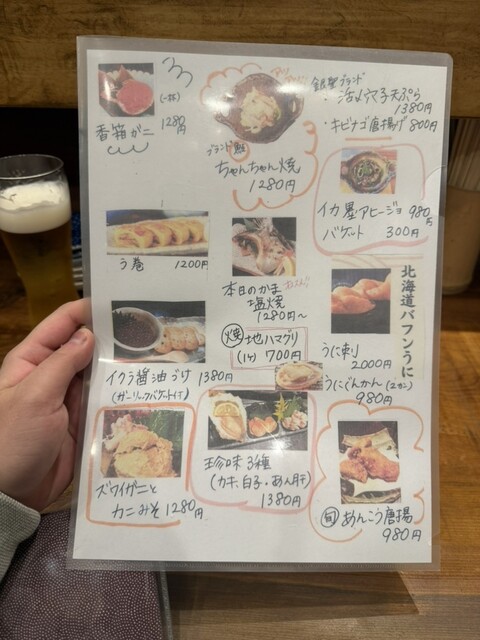 (一杯)
香箱ガニ 1280円
ブランド鮭
ちゃんちゃん焼
1280円
銀聖ブランド
・活〆穴子天ぷら
1380円
・キビナゴ唐揚げ 800円
イカ墨アヒージョ 980円
バゲット 300円
う巻 1200円
本日のかま
塩焼
1280円〜
焼 地ハマグリ
(1ヶ) 700円
北海道バフンうに
うに刺
2000円
うにぐんかん(2カン)
980円
イクラ醤油づけ 1380円
(ガーリックバゲット付)
ズワイガニと
カニみそ 1280円
珍味3種
(カキ、白子・あん肝)
1380円
旬 あんこう唐揚
980円